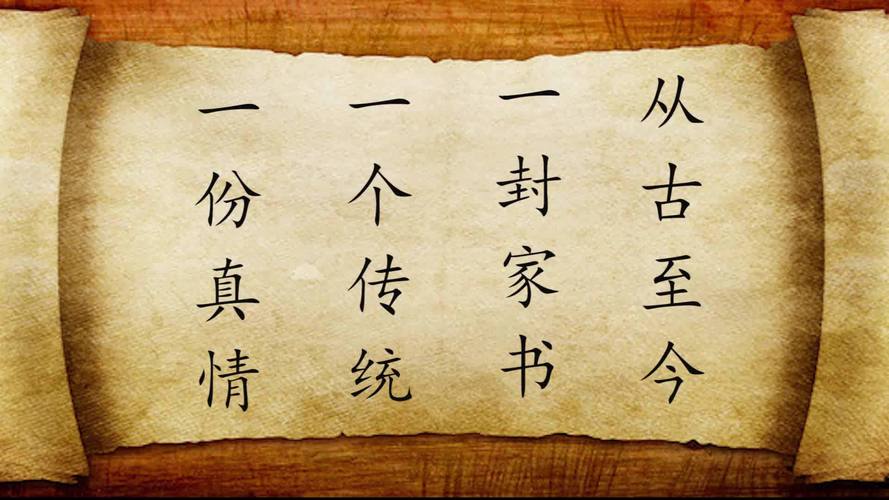 从古至今
一封家书
一个传统
一份真情